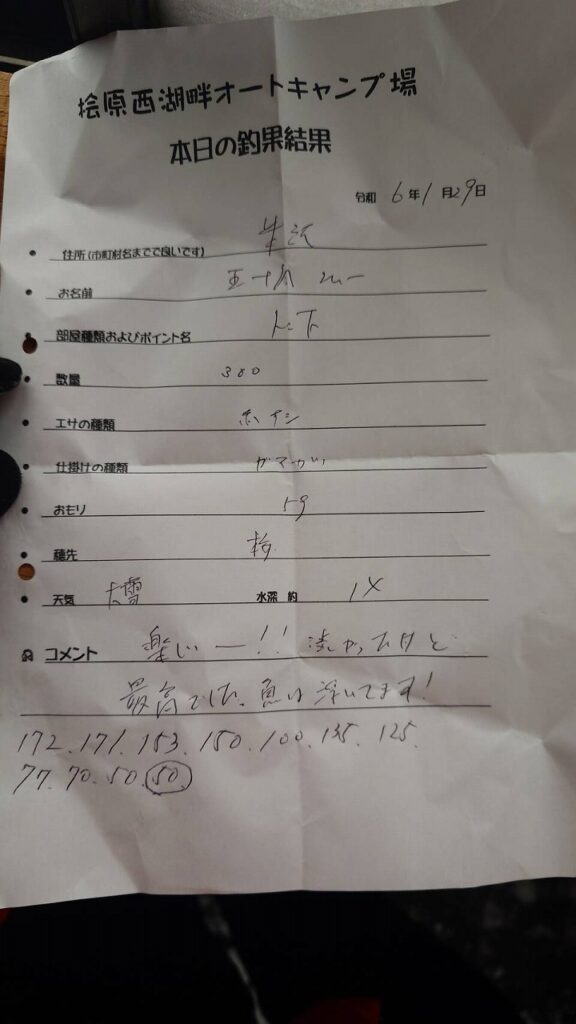 桧原西湖畔オートキャンプ場
本日の釣果結果
令和 6年1月29日
住所(市町村名までで良いです) 米沢
お名前 五十嵐
部屋種類およびポイント名
数量 380
エサの種類
仕掛けの種類 ガマカツ
おもり 5g
穂先
天気 大雪 水深 約 14
コメント 楽しー!! 凄かったけど
最高でした。魚は浮いてます!
172.171.153.150.100.135.125.
77.70.50.50